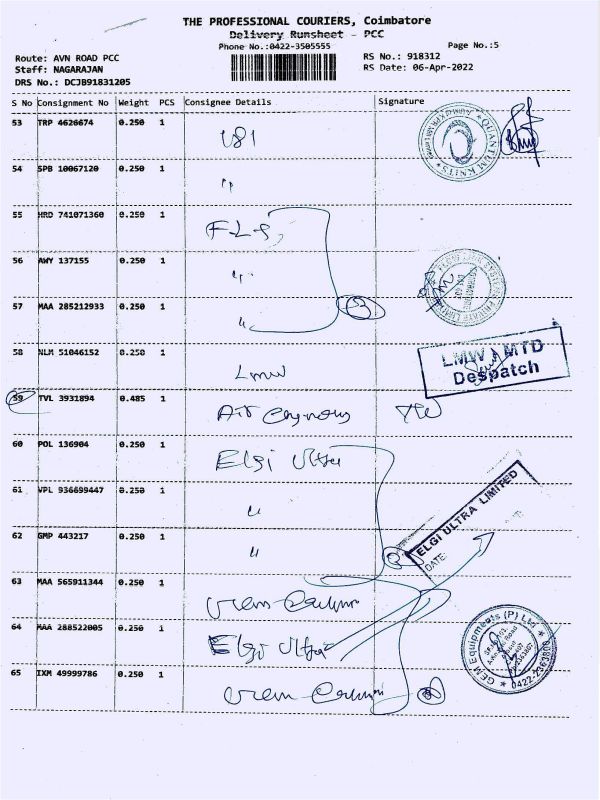 THE PROFESSIONAL COURIERS, Coimbatore
Delivery Runsheet - PCC
Phone No.:0422-3505555
Page No.:5
Route: AVN ROAD PCC
RS No.: 918312
Staff: NAGARAJAN
RS Date: 06-Apr-2022
DRS No.: DCJB91831205
S No Consignment No Weight PCS Consignee Details Signature
53 TRP 4626674 0.250 1
QUANTUM KNITS
54 SPB 10067120 0.250 1 "
55 HRD 741071360 0.250 1
56 AWY 137155 0.250 1 "
57 MAA 285212933 0.250 1 "
58 NLM 51046152 0.250 1 LMW
LMW MTD
Despatch
59 TVL 3931894 0.485 1
60 POL 136904 0.250 1 Elgi Ultra
61 VPL 936699447 0.250 1 "
ELGI ULTRA LIMITED
DATE:
62 GMP 443217 0.250 1 "
63 MAA 565911344 0.250 1
64 MAA 288522005 0.250 1 Elgi Ultra
GEM Equipments (P) Ltd
0422-2363800
65 IXM 49999786 0.250 1